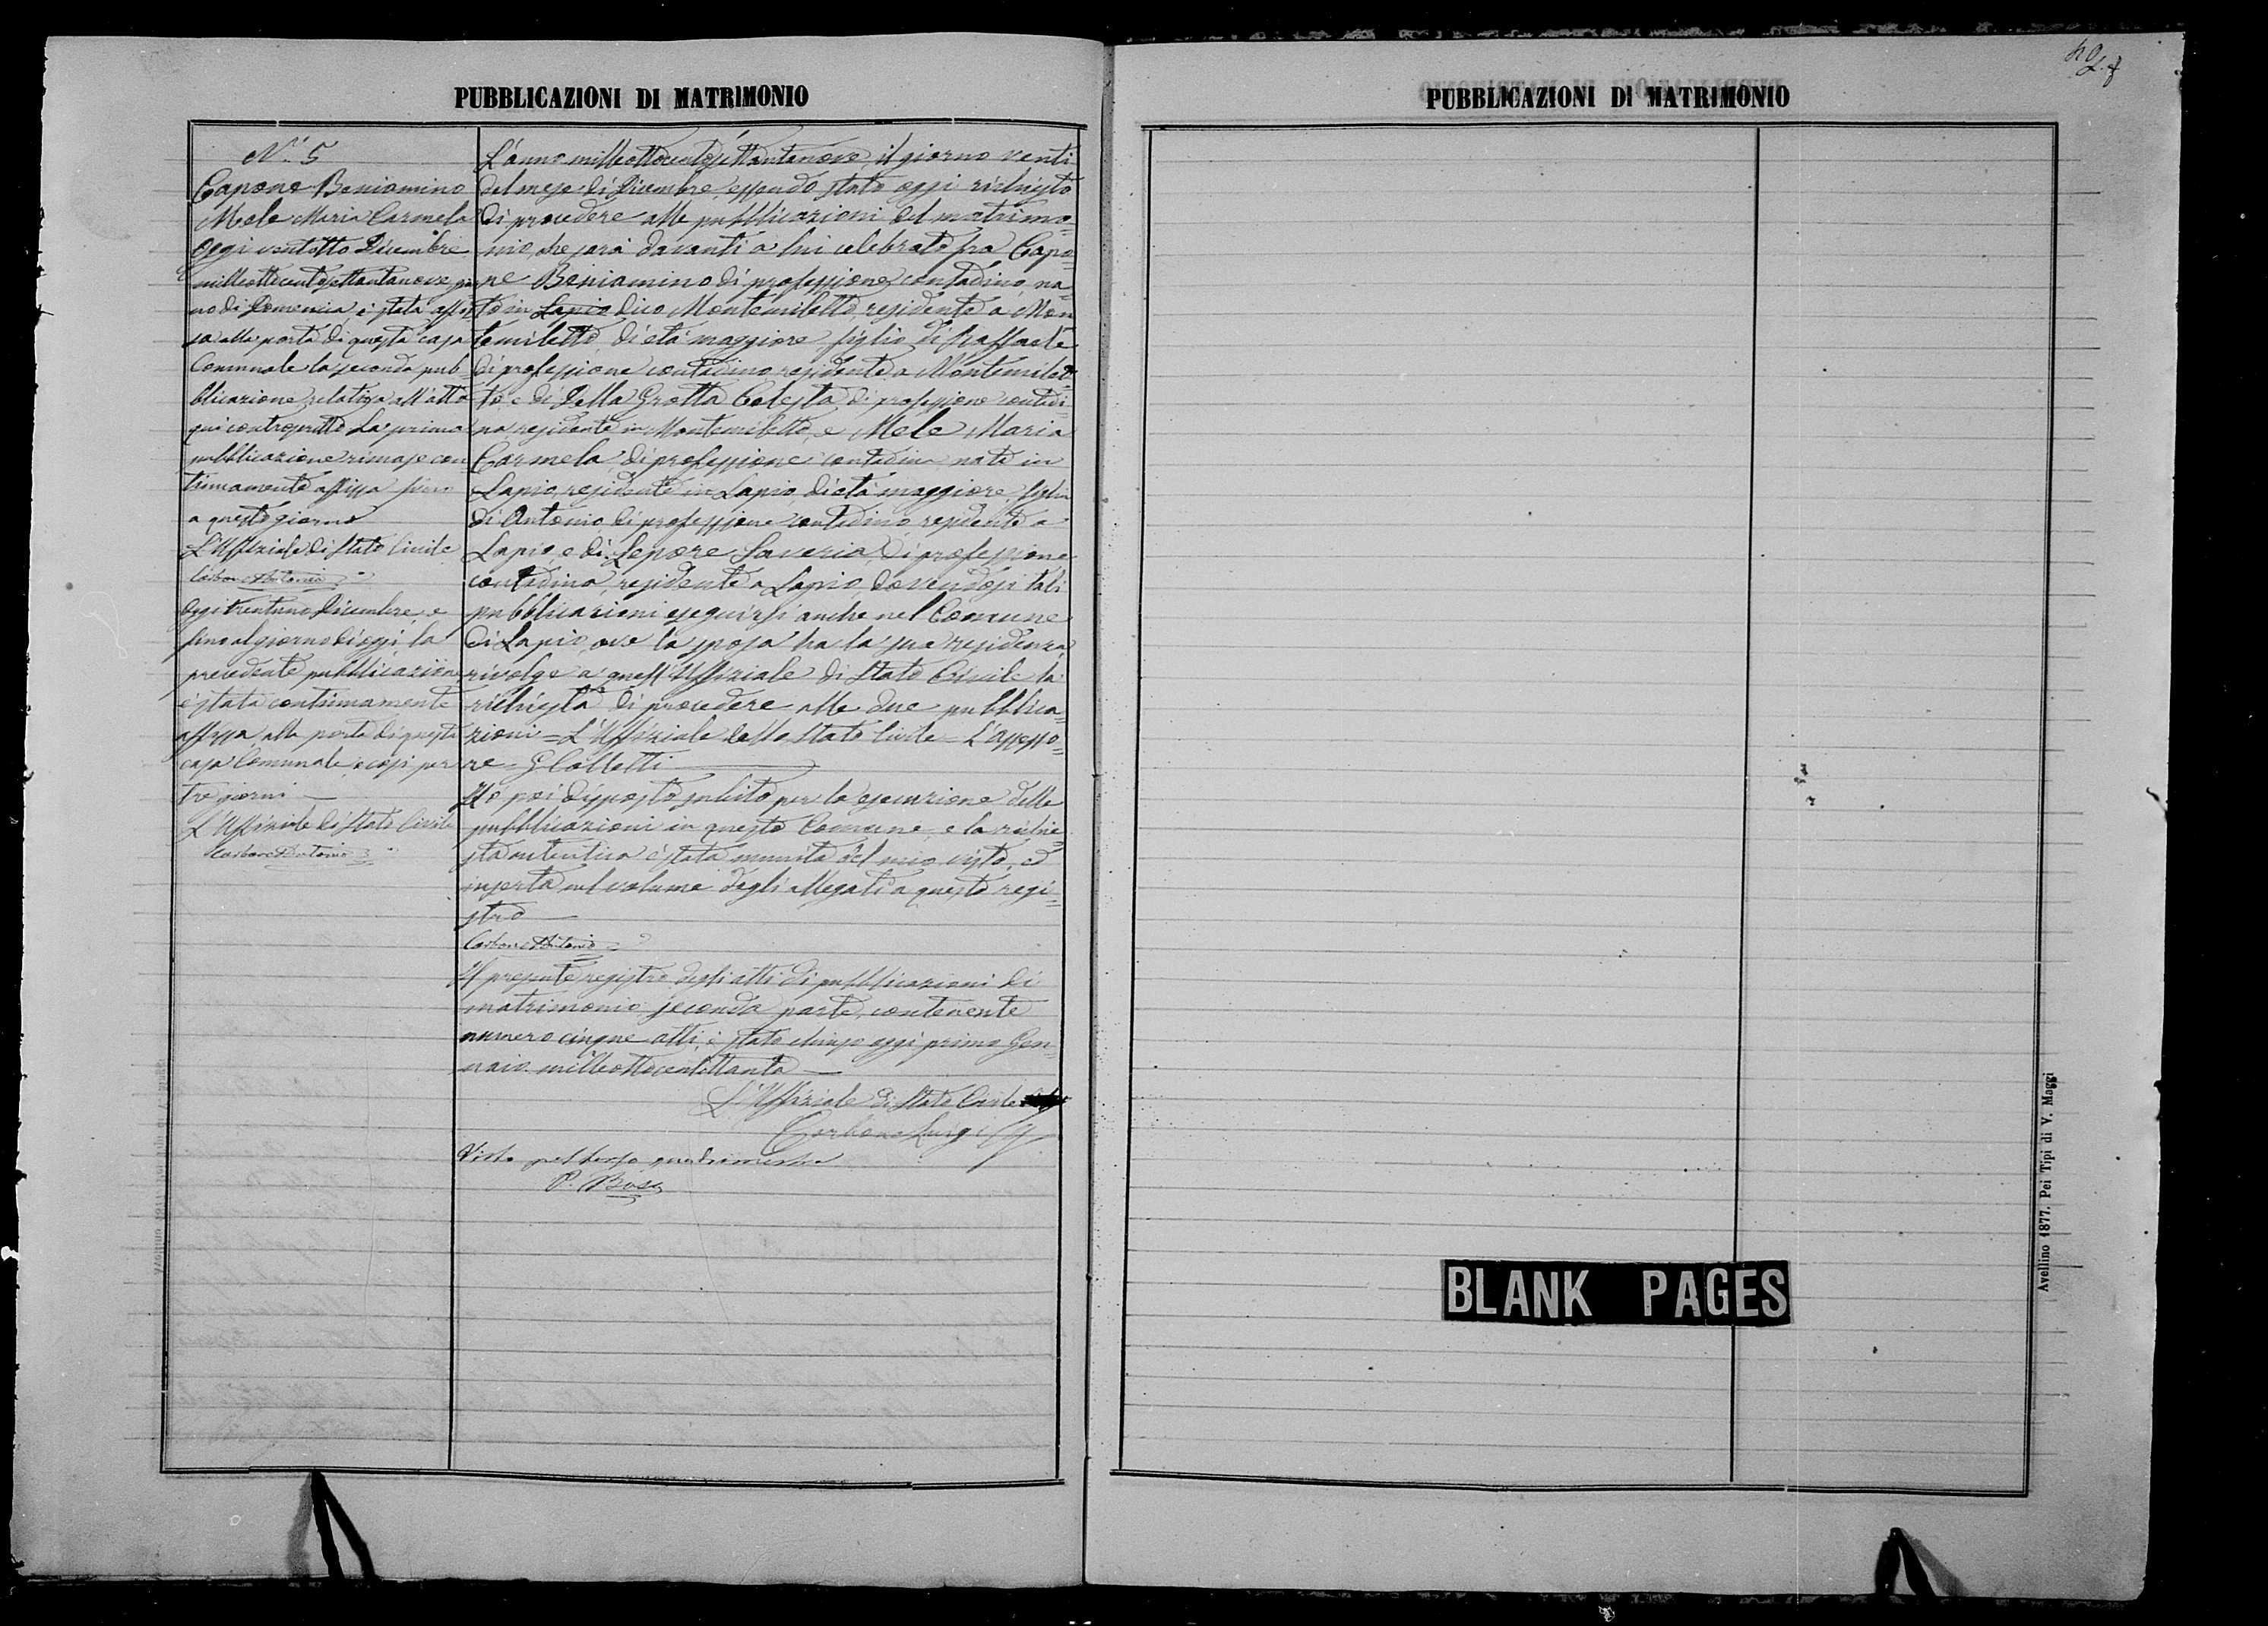 PUBBLICAZIONI DI MATRIMONIO
N.º 5
Capone Beniamino
Mele Maria Carmela
Oggi ventotto Dicembre
milleottocentosettantanove, gior
no di Domenica è stata affis
sa alla porta di questa casa
Comunale la seconda pub
blicazione relativa all'atto
qui controscritto La prima
pubblicazione rimase con
tinuamente affissa sino
a questo giorno
L'Uffiziale di Stato Civile
Carbone Antonio
Oggi trentuno Dicembre, e
sino al giorno di oggi, la
precedente pubblicazione
è stata continuamente
affissa alla porta di questa
casa Comunale, e così per
tre giorni
L'Uffiziale di Stato Civile
Carbone Antonio
L'anno milleottocentosettantanove, il giorno venti
del mese di Dicembre, essendo stato oggi richiesto
di procedere alle pubblicazioni del matrimo=
nio, che sarà davanti a lui celebrato fra Capo=
ne Beniamino di professione contadino, na=
to in Lapio dico Montemiletto, residente a Mon
temiletto, di età maggiore, figlio di Raffaele
di professione contadino residente a Montemilet=
to, e di Della Grotta Celesta di professione contadi=
na, residente in Montemiletto, e Mele Maria
Carmela, di professione contadina nata in
Lapio, residente in Lapio, di età maggiore, figlia
di Antonio di professione contadino residente a
Lapio, e di Lepore Saveria, di professione
contadina, residente a Lapio, dovendosi tali
pubblicazioni eseguirsi anche nel Comune
di Lapio, ove la sposa ha la sua residenza,
rivolge a quell'Uffiziale di Stato Civile la
richiesta di procedere alle due pubblica=
zioni = L'Uffiziale dello Stato Civile = L'Assesso=
re = G Colletti
Ho poi disposto subito per la esecuzione delle
pubblicazioni in questo Comune, e la richie=
sta autentica è stata munita del mio visto, ed
inserta nel volume degli allegati a questo regi=
stro
Carbone Antonio
Il presente registro degli atti di pubblicazioni di
matrimonio seconda parte, contenente
numero cinque atti, è stato chiuso oggi primo Gen=
naio milleottocentottanta
L'Uffiziale di Stato Civile
Carbone Luigi
Visto pel terzo quadrimestre
P. Bos
PUBBLICAZIONI DI MATRIMONIO
BLANK PAGES
Avellino 1877. Pei Tipi di V. Maggi